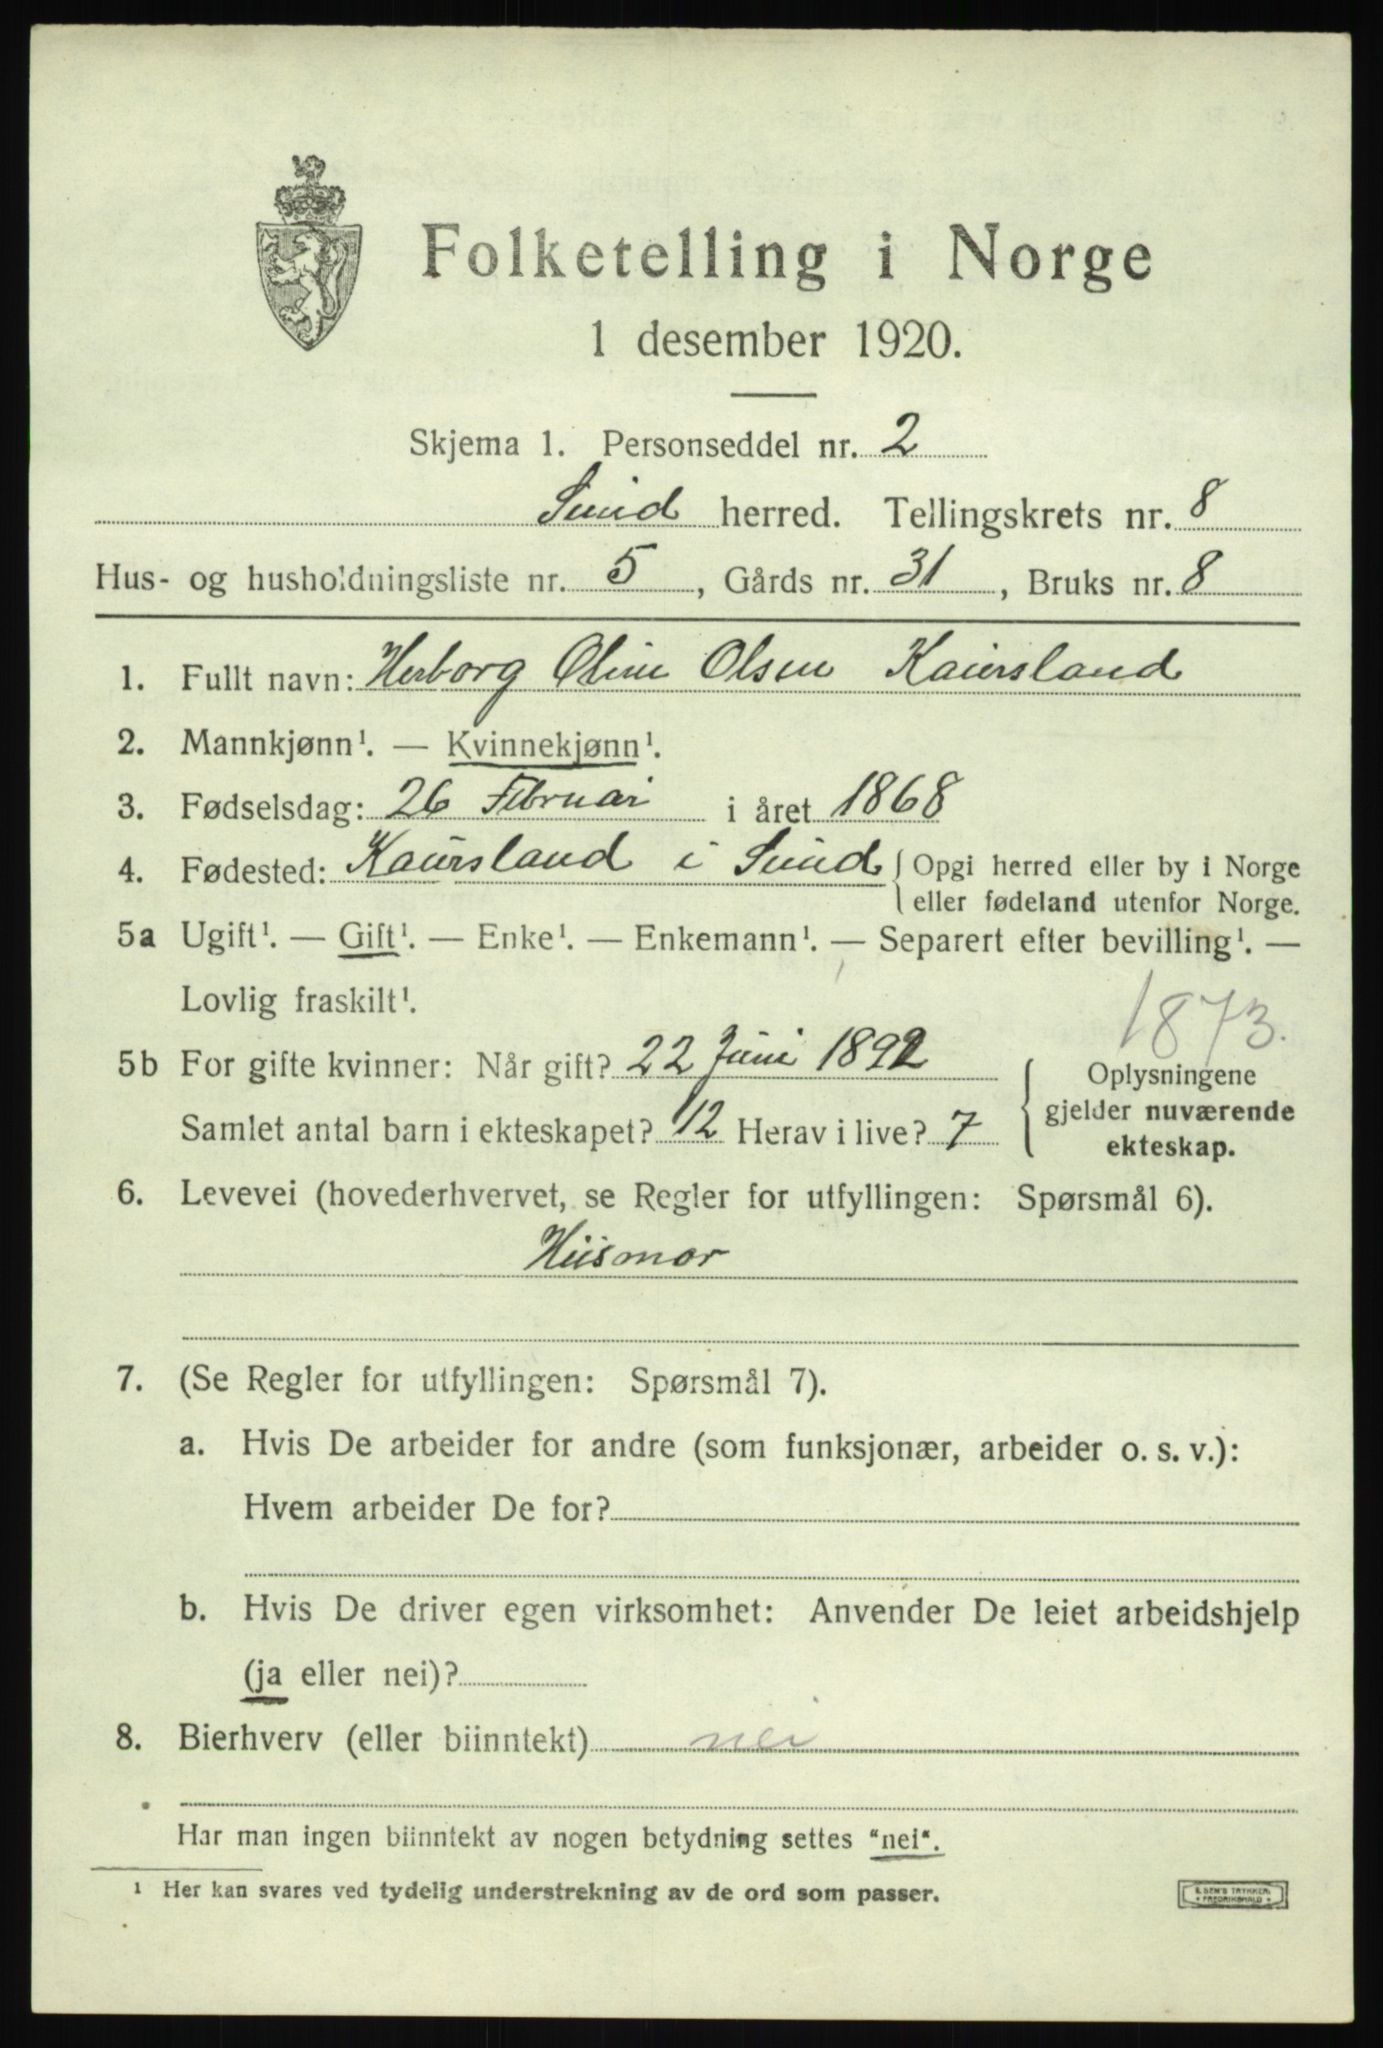 Folketelling i Norge
1 desember 1920.
Skjema 1. Personseddel nr. 2
Sund herred. Tellingskrets nr. 8
Hus- og husholdningsliste nr. 5, Gårds nr. 31, Bruks nr. 8
1. Fullt navn: Herborg Oline Olsen Kausland
2. Mannkjønn¹. — Kvinnekjønn¹.
3. Fødselsdag: 26 Februar i året 1868
4. Fødested: Kausland i Sund { Opgi herred eller by i Norge
eller fødeland utenfor Norge.
5a Ugift¹. — Gift¹. — Enke¹. — Enkemann¹. — Separert efter bevilling¹. —
Lovlig fraskilt¹.
1873.
5b For gifte kvinner: Når gift? 22 Juni 1892
Samlet antal barn i ekteskapet? 12 Herav i live? 7
{ Oplysningene
gjelder nuværende
ekteskap.
6. Levevei (hovederhvervet, se Regler for utfyllingen: Spørsmål 6).
Husmor
7. (Se Regler for utfyllingen: Spørsmål 7).
a. Hvis De arbeider for andre (som funksjonær, arbeider o. s. v.):
Hvem arbeider De for?
b. Hvis De driver egen virksomhet: Anvender De leiet arbeidshjelp
(ja eller nei)?
8. Bierhverv (eller biinntekt) nei
Har man ingen biinntekt av nogen betydning settes "nei".
¹ Her kan svares ved tydelig understrekning av de ord som passer.